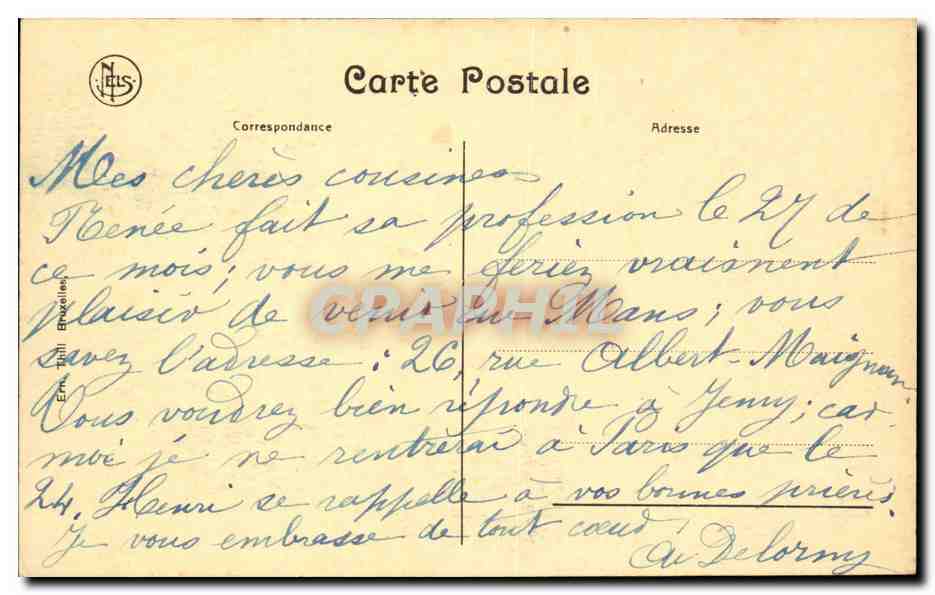 NELS
Carte Postale
Correspondance
Adresse
Mes chères cousines
Renée fait sa profession le 27 de
ce mois; vous me feriez vraiment
plaisir de venir au Mans; vous
savez l'adresse : 26, rue Albert-Maignan
Vous voudrez bien répondre à Jenny; car
moi je ne rentrerai à Paris que le
24. Henri se rappelle à vos bonnes prières.
Je vous embrasse de tout cœur,
Delorny
Ern. Thill Bruxelles
CPARHIL